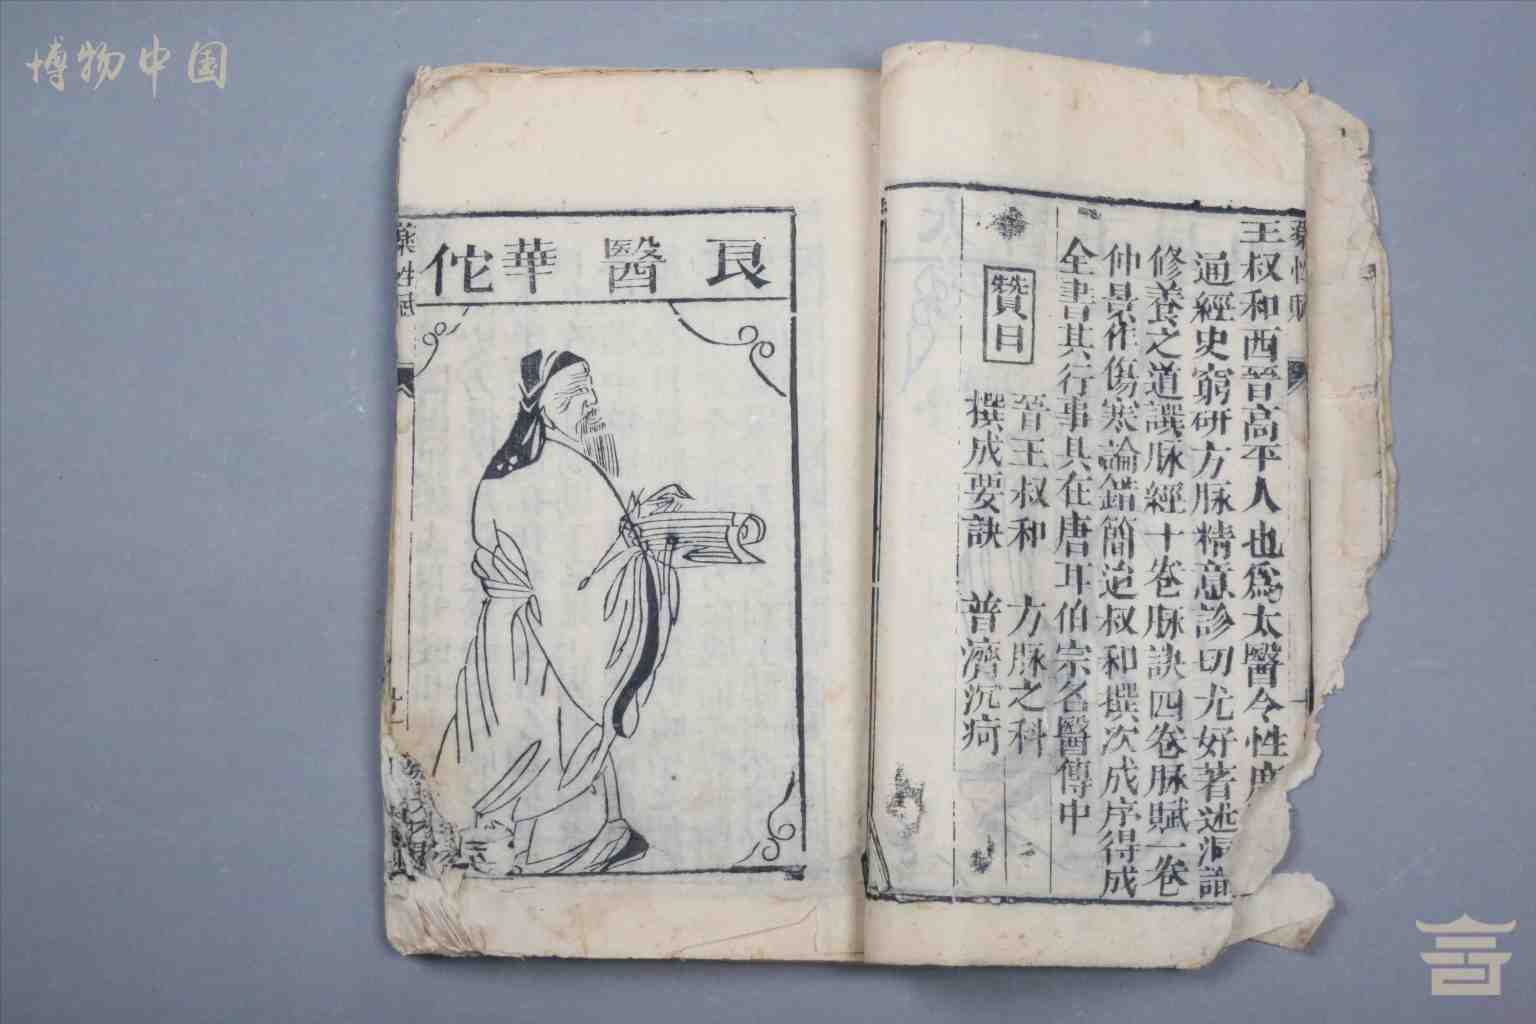 博物中国
王叔和西晉高平人也爲太醫令性度
通經史窮研方脉精意診切尤好著述洞識
修養之道譔脉經十卷脉訣四卷脉賦一卷
仲景作傷寒論錯簡迨叔和撰次成序得成
全書其行事具在唐耳伯宗名醫傳中
贊曰
晉王叔和 方脉之科
撰成要訣 普濟沉疴
良醫華佗
藥性賦
十一